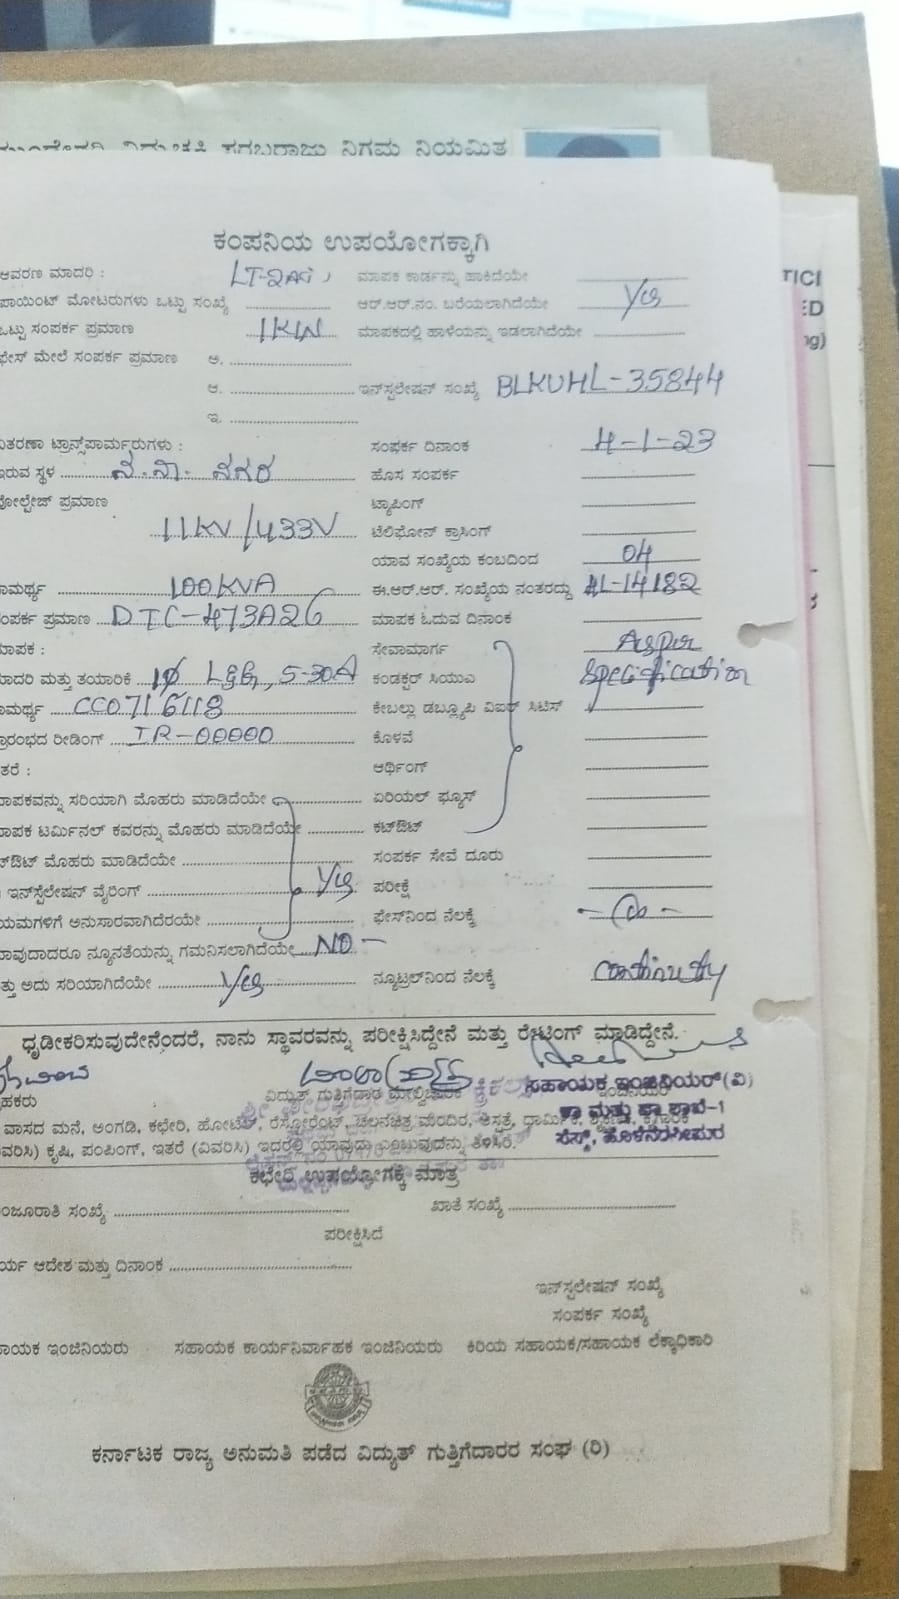 ನಿಗಮ ನಿಯಮಿತ
TICI
ED
ng)
ಕಂಪನಿಯ ಉಪಯೋಗಕ್ಕಾಗಿ
ಆವರಣ ಮಾದರಿ : ಮಾಪಕ ಕಾರ್ಡನ್ನು ಹಾಕಿದೆಯೇ
ಪಾಯಿಂಟ್ ಮೋಟರುಗಳು ಒಟ್ಟು ಸಂಖ್ಯೆ ಆರ್.ಆರ್.ನಂ. ಬರೆಯಲಾಗಿದೆಯೇ Yes
ಒಟ್ಟು ಸಂಪರ್ಕ ಪ್ರಮಾಣ 1KW ಮಾಪಕದಲ್ಲಿ ಹಾಳೆಯನ್ನು ಇಡಲಾಗಿದೆಯೇ
ಫೇಸ್ ಮೇಲೆ ಸಂಪರ್ಕ ಪ್ರಮಾಣ ಅ.
ಆ. ಇನ್‌ಸ್ಟಲೇಷನ್ ಸಂಖ್ಯೆ BLKUHL-35844
ಇ.
ವಿತರಣಾ ಟ್ರಾನ್ಸ್‌ಫಾರ್ಮರುಗಳು : ಸಂಪರ್ಕ ದಿನಾಂಕ 4-1-23
ಇರುವ ಸ್ಥಳ ನಗರ ಹೊಸ ಸಂಪರ್ಕ
ವೋಲ್ಟೇಜ್ ಪ್ರಮಾಣ ಟ್ಯಾಪಿಂಗ್
11KV/433V ಟೆಲಿಫೋನ್ ಕ್ರಾಸಿಂಗ್
ಯಾವ ಸಂಖ್ಯೆಯ ಕಂಬದಿಂದ 04
ಾಮರ್ಥ್ಯ 100KVA ಈ.ಆರ್.ಆರ್. ಸಂಖ್ಯೆಯ ನಂತರದ್ದು HL-14182
ಸಂಪರ್ಕ ಪ್ರಮಾಣ DTC-473A26 ಮಾಪಕ ಓದುವ ದಿನಾಂಕ
ಮಾಪಕ : ಸೇವಾಮಾರ್ಗ As per
ಮಾದರಿ ಮತ್ತು ತಯಾರಿಕೆ 1φ L&G, 5-30A ಕಂಡಕ್ಟರ್ ಸಿಯುಎ specification
ಾಮರ್ಥ್ಯ CC0716118 ಕೇಬಲ್ಲು ಡಬ್ಲ್ಯೂಪಿ ವಿಐಆರ್ ಸಿಟಿಸ್
ಪ್ರಾರಂಭದ ರೀಡಿಂಗ್ IR-00000 ಕೊಳವೆ
ತರೆ : ಆರ್ಥಿಂಗ್
ಮಾಪಕವನ್ನು ಸರಿಯಾಗಿ ಮೊಹರು ಮಾಡಿದೆಯೇ ಏರಿಯಲ್ ಫ್ಯೂಸ್
ಮಾಪಕ ಟರ್ಮಿನಲ್ ಕವರನ್ನು ಮೊಹರು ಮಾಡಿದೆಯೇ ಕಟ್‌ಔಟ್
ಟ್‌ಔಟ್ ಮೊಹರು ಮಾಡಿದೆಯೇ ಸಂಪರ್ಕ ಸೇವೆ ದೂರು
ಇನ್‌ಸ್ಟೆಲೇಷನ್ ವೈರಿಂಗ್ Yes ಪರೀಕ್ಷೆ
ಯಮಗಳಿಗೆ ಅನುಸಾರವಾಗಿದೆರಯೇ ಫೇಸ್‌ನಿಂದ ನೆಲಕ್ಕೆ
ಯಾವುದಾದರೂ ನ್ಯೂನತೆಯನ್ನು ಗಮನಿಸಲಾಗಿದೆಯೇ NO
ತ್ತು ಅದು ಸರಿಯಾಗಿದೆಯೇ Yes ನ್ಯೂಟ್ರಲ್‌ನಿಂದ ನೆಲಕ್ಕೆ continuity
ಧೃಡೀಕರಿಸುವುದೇನೆಂದರೆ, ನಾನು ಸ್ಥಾವರವನ್ನು ಪರೀಕ್ಷಿಸಿದ್ದೇನೆ ಮತ್ತು ರೇಟಿಂಗ್ ಮಾಡಿದ್ದೇನೆ.
ಹಕರು ವಿದ್ಯುತ್ ಗುತ್ತಿಗೆದಾರ ಮೇಲ್ವಿಚಾರಕ
ಸಹಾಯಕ ಇಂಜನಿಯರ್(ವಿ)
ಕಾ ಮತ್ತು ಪಾ ಶಾಖೆ-1
ಸೆಸ್ಕ್, ಹೊಳೆನರಸೀಪುರ
ವಾಸದ ಮನೆ, ಅಂಗಡಿ, ಕಛೇರಿ, ಹೋಟೆಲ್, ರೆಸ್ಟೋರೆಂಟ್, ಚಲನಚಿತ್ರ ಮಂದಿರ, ಆಸ್ಪತ್ರೆ, ಧಾರ್ಮಿಕ,
ವಿವರಿಸಿ) ಕೃಷಿ, ಪಂಪಿಂಗ್, ಇತರೆ (ವಿವರಿಸಿ) ಇದರಲ್ಲಿ ಯಾವುದು ಎಂಬುವುದನ್ನು ತಿಳಿಸಿರಿ.
ಕಛೇರಿ ಉಪಯೋಗಕ್ಕೆ ಮಾತ್ರ
ಂಜೂರಾತಿ ಸಂಖ್ಯೆ ಖಾತೆ ಸಂಖ್ಯೆ
ಪರೀಕ್ಷಿಸಿದೆ
ರ್ಯ ಆದೇಶ ಮತ್ತು ದಿನಾಂಕ
ಇನ್‌ಸ್ಟಲೇಷನ್ ಸಂಖ್ಯೆ
ಸಂಪರ್ಕ ಸಂಖ್ಯೆ
ಾಯಕ ಇಂಜಿನಿಯರು ಸಹಾಯಕ ಕಾರ್ಯನಿರ್ವಾಹಕ ಇಂಜಿನಿಯರು ಕಿರಿಯ ಸಹಾಯಕ/ಸಹಾಯಕ ಲೆಕ್ಕಾಧಿಕಾರಿ
ಕರ್ನಾಟಕ ರಾಜ್ಯ ಅನುಮತಿ ಪಡೆದ ವಿದ್ಯುತ್ ಗುತ್ತಿಗೆದಾರರ ಸಂಘ (ರಿ)